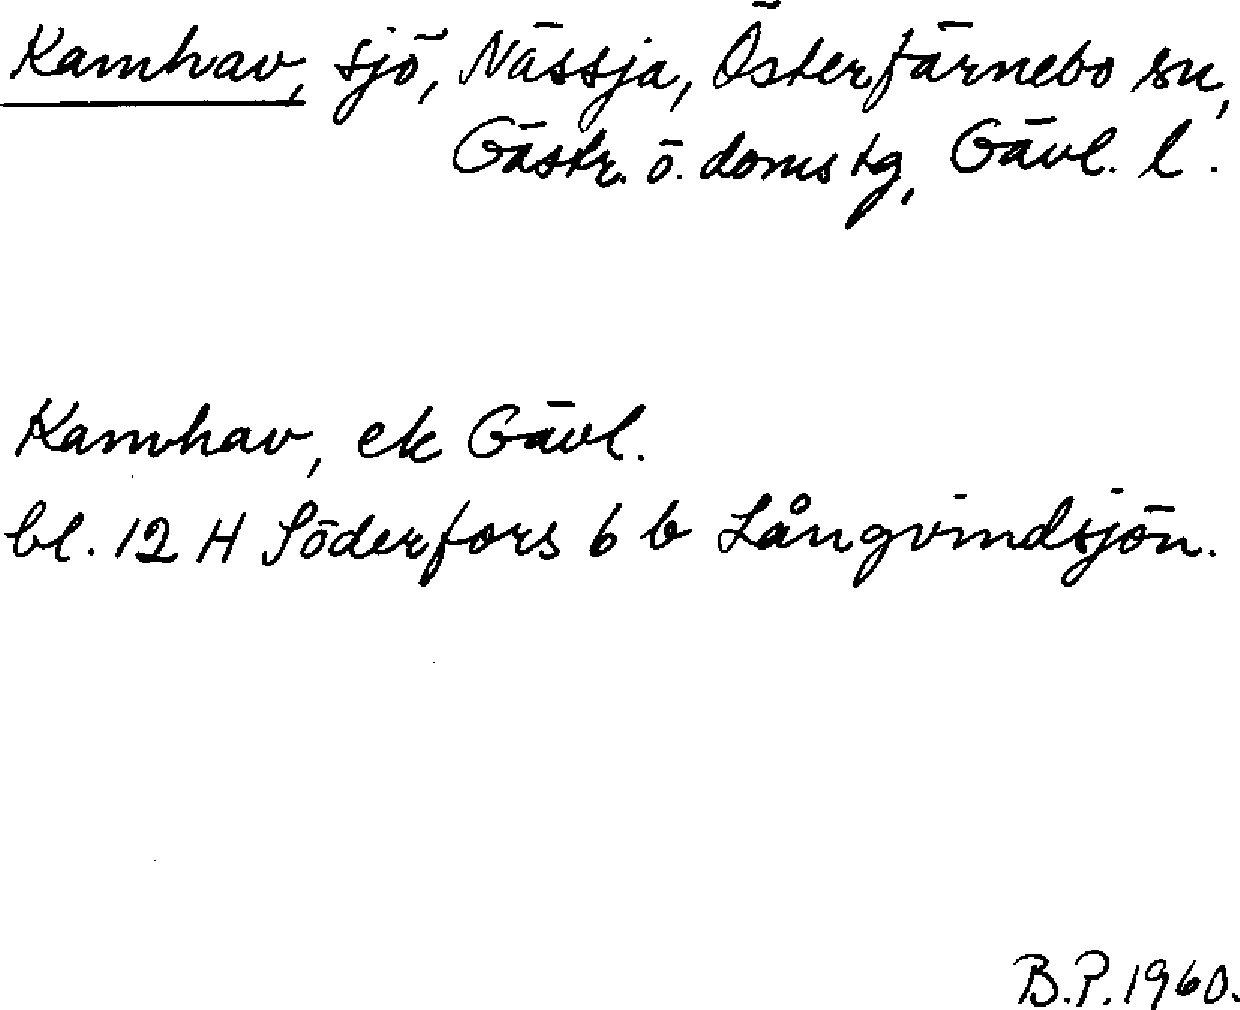 Kamhav, sjö, Nässja, Österfärnebo sn,
Gästr. ö. doms tg, Gävl. l.
Kamhav, ek Gävl.
bl. 12 H Söderfors 6 b Långvindsjön.
B.P. 1960.